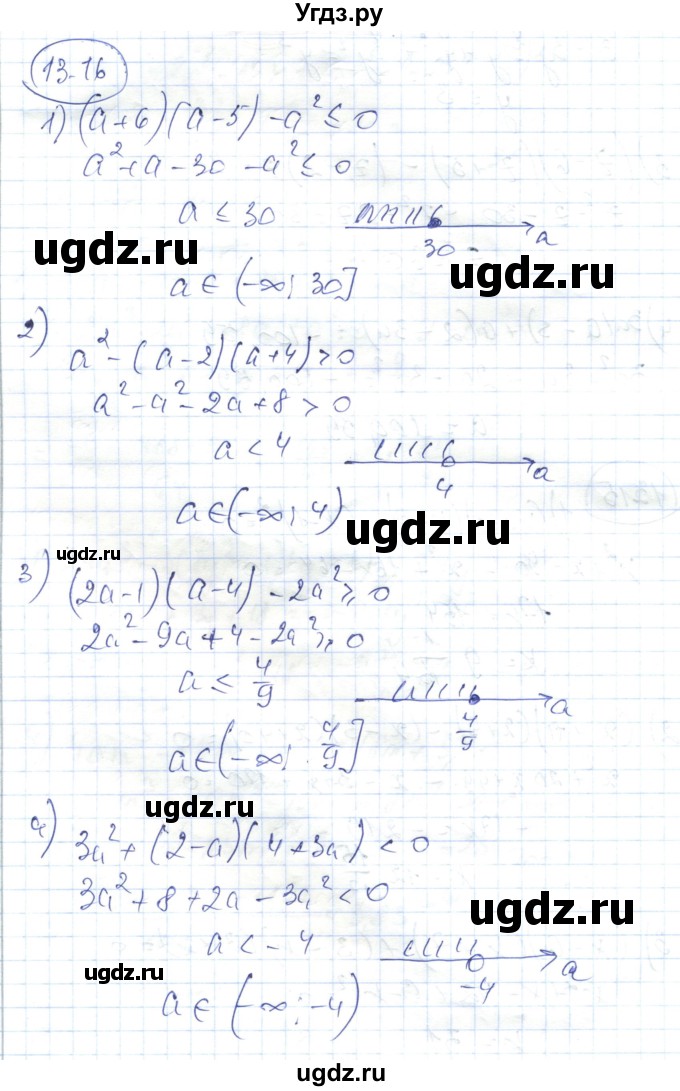 Угдз.ру
13.16
1) (a+6)(a-5) - a² ≤ 0
a² + a - 30 - a² ≤ 0
a ≤ 30
30
a
ugdz.ru
ugdz.ru
a ∈ (-∞; 30]
2)
a² - (a-2)(a+4) > 0
a² - a² - 2a + 8 > 0
a < 4
4
a
a ∈ (-∞; 4)
ugdz.ru
ugdz.ru
3)
(2a-1)(a-4) - 2a² ≥ 0
2a² - 9a + 4 - 2a² ≥ 0
a ≤ 4/9
4/9
a
a ∈ (-∞; 4/9]
ugdz.ru
4)
3a² + (2-a)(4+3a) < 0
3a² + 8 + 2a - 3a² < 0
ugdz.ru
a < -4
-4
a
ugdz.ru
a ∈ (-∞; -4)
ugdz.ru